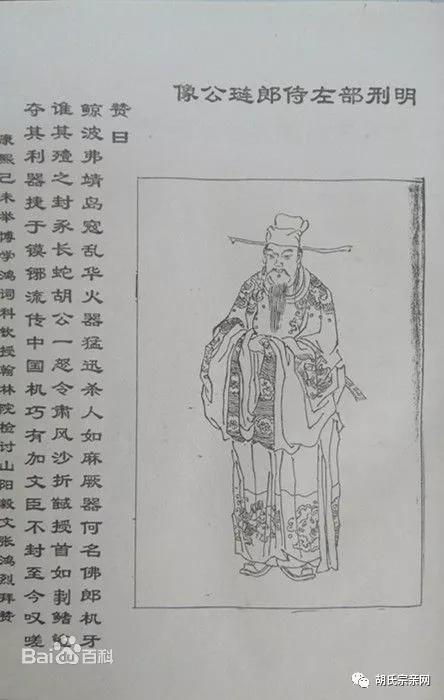 明刑部左侍郎琏公像
赞曰
鲸波弗靖岛寇乱华火器猛迅杀人如麻厥器何名佛郎机牙
谁其殪之封豕长蛇胡公一怒令肃风沙折馘授首如
夺其利器捷于镆铘流传中国机巧有加文臣不封至今叹嗟
康熙己未举博学鸿词科钦授翰林院检讨山阳毅文张鸿烈拜赞
Bai百科
胡氏宗亲网